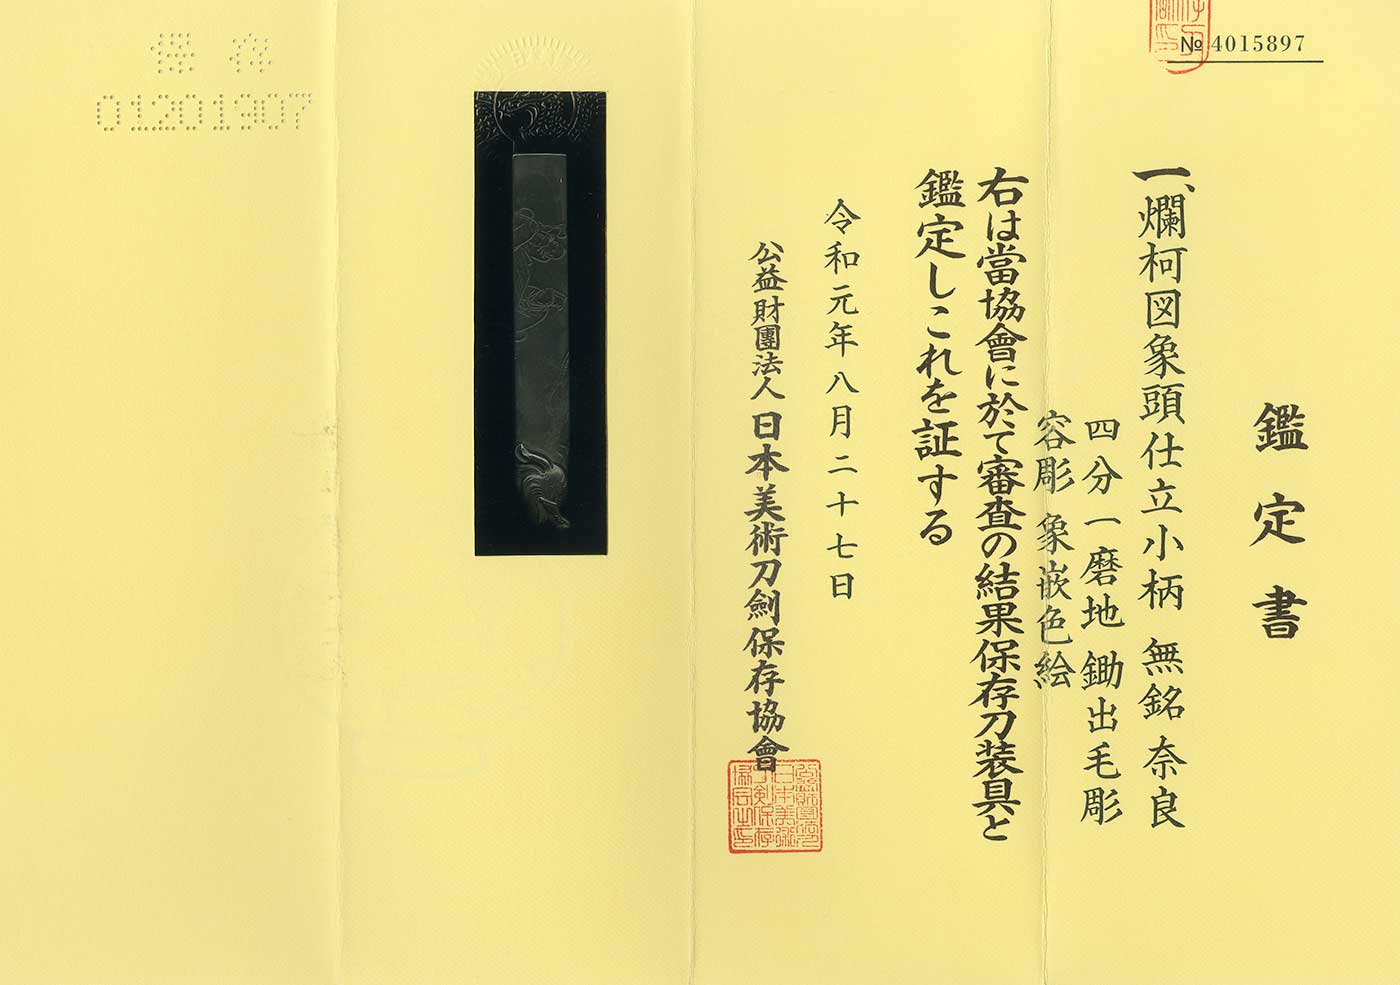 № 4015897
鑑定書
一、爛柯図象頭仕立小柄 無銘 奈良
四分一磨地 鋤出毛彫
容彫 象嵌色絵
右は當協會に於て審査の結果保存刀装具と
鑑定しこれを証する
令和元年八月二十七日
公益財團法人 日本美術刀劍保存協會
保存
01201907